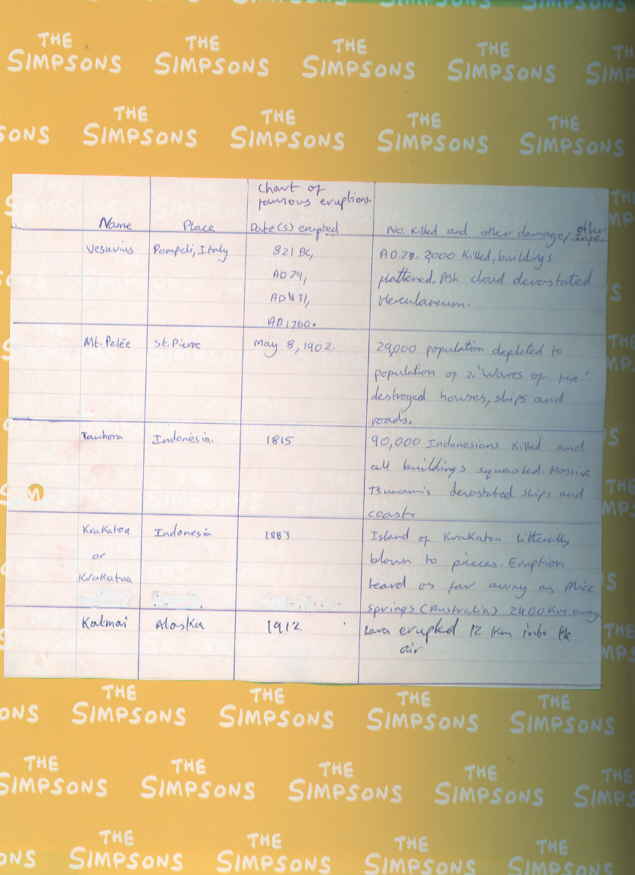 THE THE THE THE
SIMPSONS SIMPSONS SIMPSONS SIMPSONS
THE THE THE THE
SONS SIMPSONS SIMPSONS SIMPSONS SIMPSONS
Chart of
famous eruptions
Name Place Date(s) erupted No. Killed and other damage, other
Vesuvius Pompeii, Italy 821 BC, A.D.79. 2000 Killed, buildings
AD 79, flattened. Ash cloud devastated
Herculaneum.
AD 1700.
Mt. Pelée St. Pierre May 8, 1902. 29,000 population depleted to
population of 2. 'Waves of fire'
destroyed houses, ships and
roads.
Tambora Indonesia. 1815 90,000 Indonesians Killed and
all buildings squashed. Massive
Tsunamis devastated ships and
coasts
Krakatoa Indonesia 1883 Island of Krakatoa litterally
or blown to pieces. Eruption
Krakatua heard as far away as Alice
Springs (Australia) 2400 Km away
Katmai Alaska 1912 Lava erupted 12 Km into the
air
THE THE THE THE
ONS SIMPSONS SIMPSONS SIMPSONS SIMPSONS
THE THE THE THE THE
SIMPSONS SIMPSONS SIMPSONS SIMPSONS SIMPS
THE THE THE THE
ONS SIMPSONS SIMPSONS SIMPSONS SIMPSONS